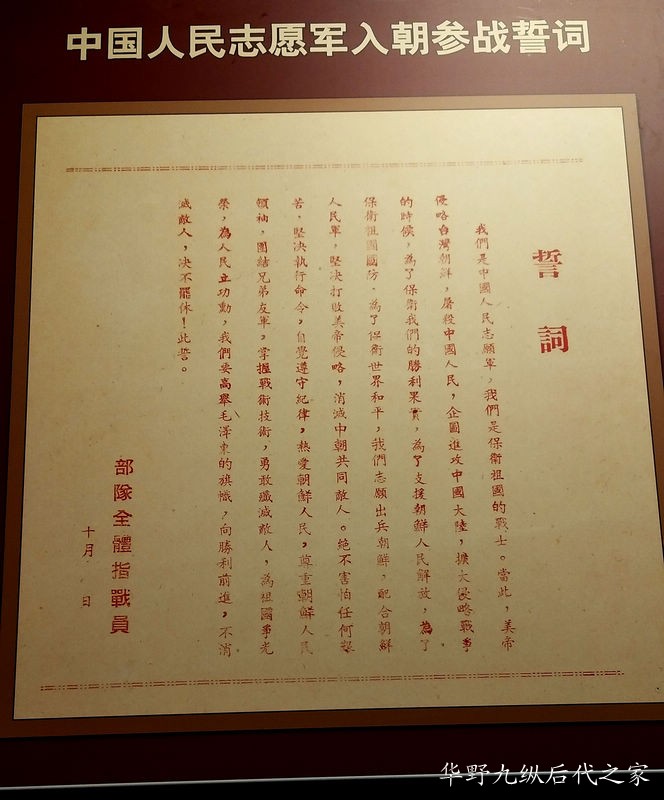 中国人民志愿军入朝参战誓词
誓詞
我們是中國人民志願軍，我們是保衛祖國的戰士。當此，美帝
侵略台灣朝鮮，屠殺中國人民，企圖進攻中國大陸，擴大侵略戰爭
的時候，為了保衛我們的勝利果實，為了支援朝鮮人民解放，為了
保衛祖國國防，為了保衛世界和平，我們志願出兵朝鮮，配合朝鮮
人民軍，堅决打敗美帝侵略，消滅中朝共同敵人。絶不害怕任何艱
苦，堅决執行命令，自覺遵守紀律，熱愛朝鮮人民，尊重朝鮮人民
領袖，團結兄弟友軍，掌握戰術技術，勇敢殲滅敵人，為祖國爭光
榮，為人民立功勳，我們要高舉毛澤東的旗幟，向勝利前進，不消
滅敵人，决不罷休！此誓。
部隊全體指戰員
十月　日
华野九纵后代之家